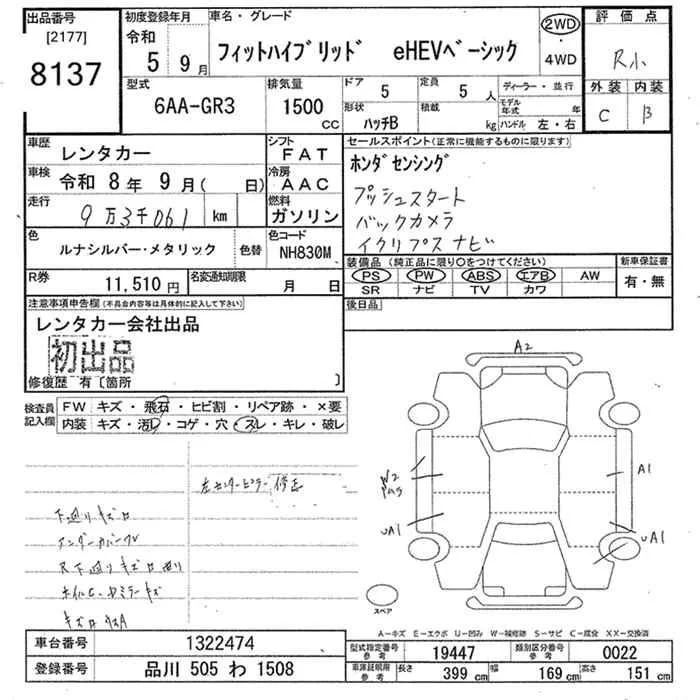 出品番号
[2177]
8137
初度登録年月
令和
5 9月
車名・グレード
フィットハイブリッド eHEVベーシック
2WD
・
4WD
評価点
R小
外装 内装
C B
型式
6AA-GR3
排気量
1500
CC
ドア
5
定員
5 人
形状
ハッチB
積載
kg
ディーラー・並行
モデル年式 年
ハンドル 左・右
車歴
レンタカー
車検 令和 8年 9月( 日)
走行
9万3千061 km
シフト
FAT
冷房
AAC
燃料
ガソリン
セールスポイント(正常に機能するものに限ります)
ホンダセンシング
プッシュスタート
バックカメラ
イクリプスナビ
色
ルナシルバー・メタリック
色替
色コード
NH830M
装備品(純正品に限り○をつけてください)
PS PW ABS エアB AW
SR ナビ TV カワ
新車保証書
有・無
R券
11,510円
名変通知期限
月 日
後日品
注意事項申告欄(不具合内容等は具体的に記入して下さい)
レンタカー会社出品
初出品
修復歴 有〔箇所 〕
検査員
記入欄
FW キズ・飛石・ヒビ割・リペア跡・×要
内装 キズ・汚れ・コゲ・穴・スレ・キレ・破レ
左センターピラー修正
下廻りキズ
アンダーカバー
A2
W2
A1
UA1
UA1
スペア
A-キズ E-エクボ U-凹み W-補修跡 S-サビ C-腐食 XX-交換済
車台番号 1322474
登録番号 品川 505 わ 1508
型式指定番号
参考
19447
類別区分番号
参考
0022
車庫証明用
参考
長さ 399 cm 幅 169 cm 高さ 151 cm